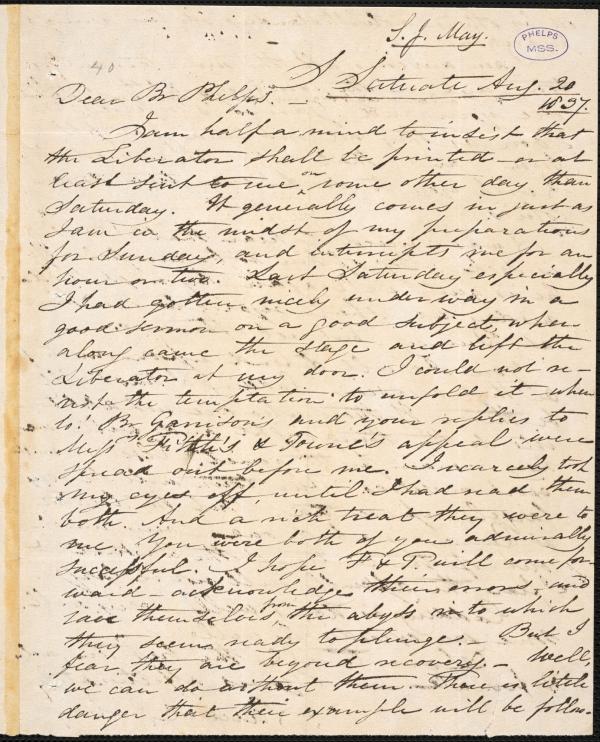 S. J. May.
PHELPS
MSS.
40
S. Scituate Aug. 20
1837.
Dear Br Phelps. —
I am half a mind to insist that
the Liberator shall be printed — or at
least sent to me on some other day than
Saturday. It generally comes in just as
I am in the midst of my preparations
for Sunday, and interrupts me for an
hour or two. Last Saturday especially
I had gotten nicely under way in a
good sermon on a good subject, when
along came the stage and left the
Liberator at my door. I could not re-
sist the temptation to unfold it — when
lo! Br Garrisons and your replies to
Messrs Fitch's & Towne's appeal were
spread out before me. I scarcely took
my eyes off, until I had read them
both. And a rich treat they were to
me. You were both of you admirably
successful. I hope F & T will come for-
ward — acknowledge their errors, and
save themselves from the abyss into which
they seem ready to plunge. — But I
fear they are beyond recovery. — Well,
we can do without them. There is little
danger that their example will be follow-